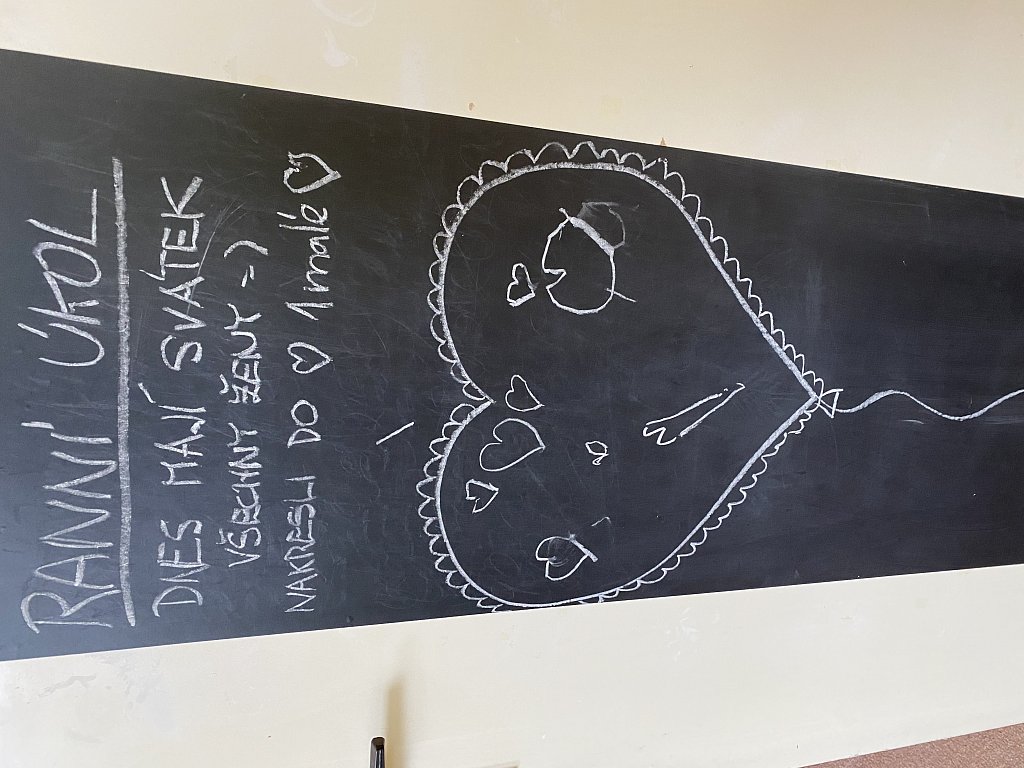 RANNÍ ÚKOL
DNES MAJÍ SVÁTEK
VŠECHNY ŽENY :-)
NAKRESLI DO ♡ 1 malé ♡